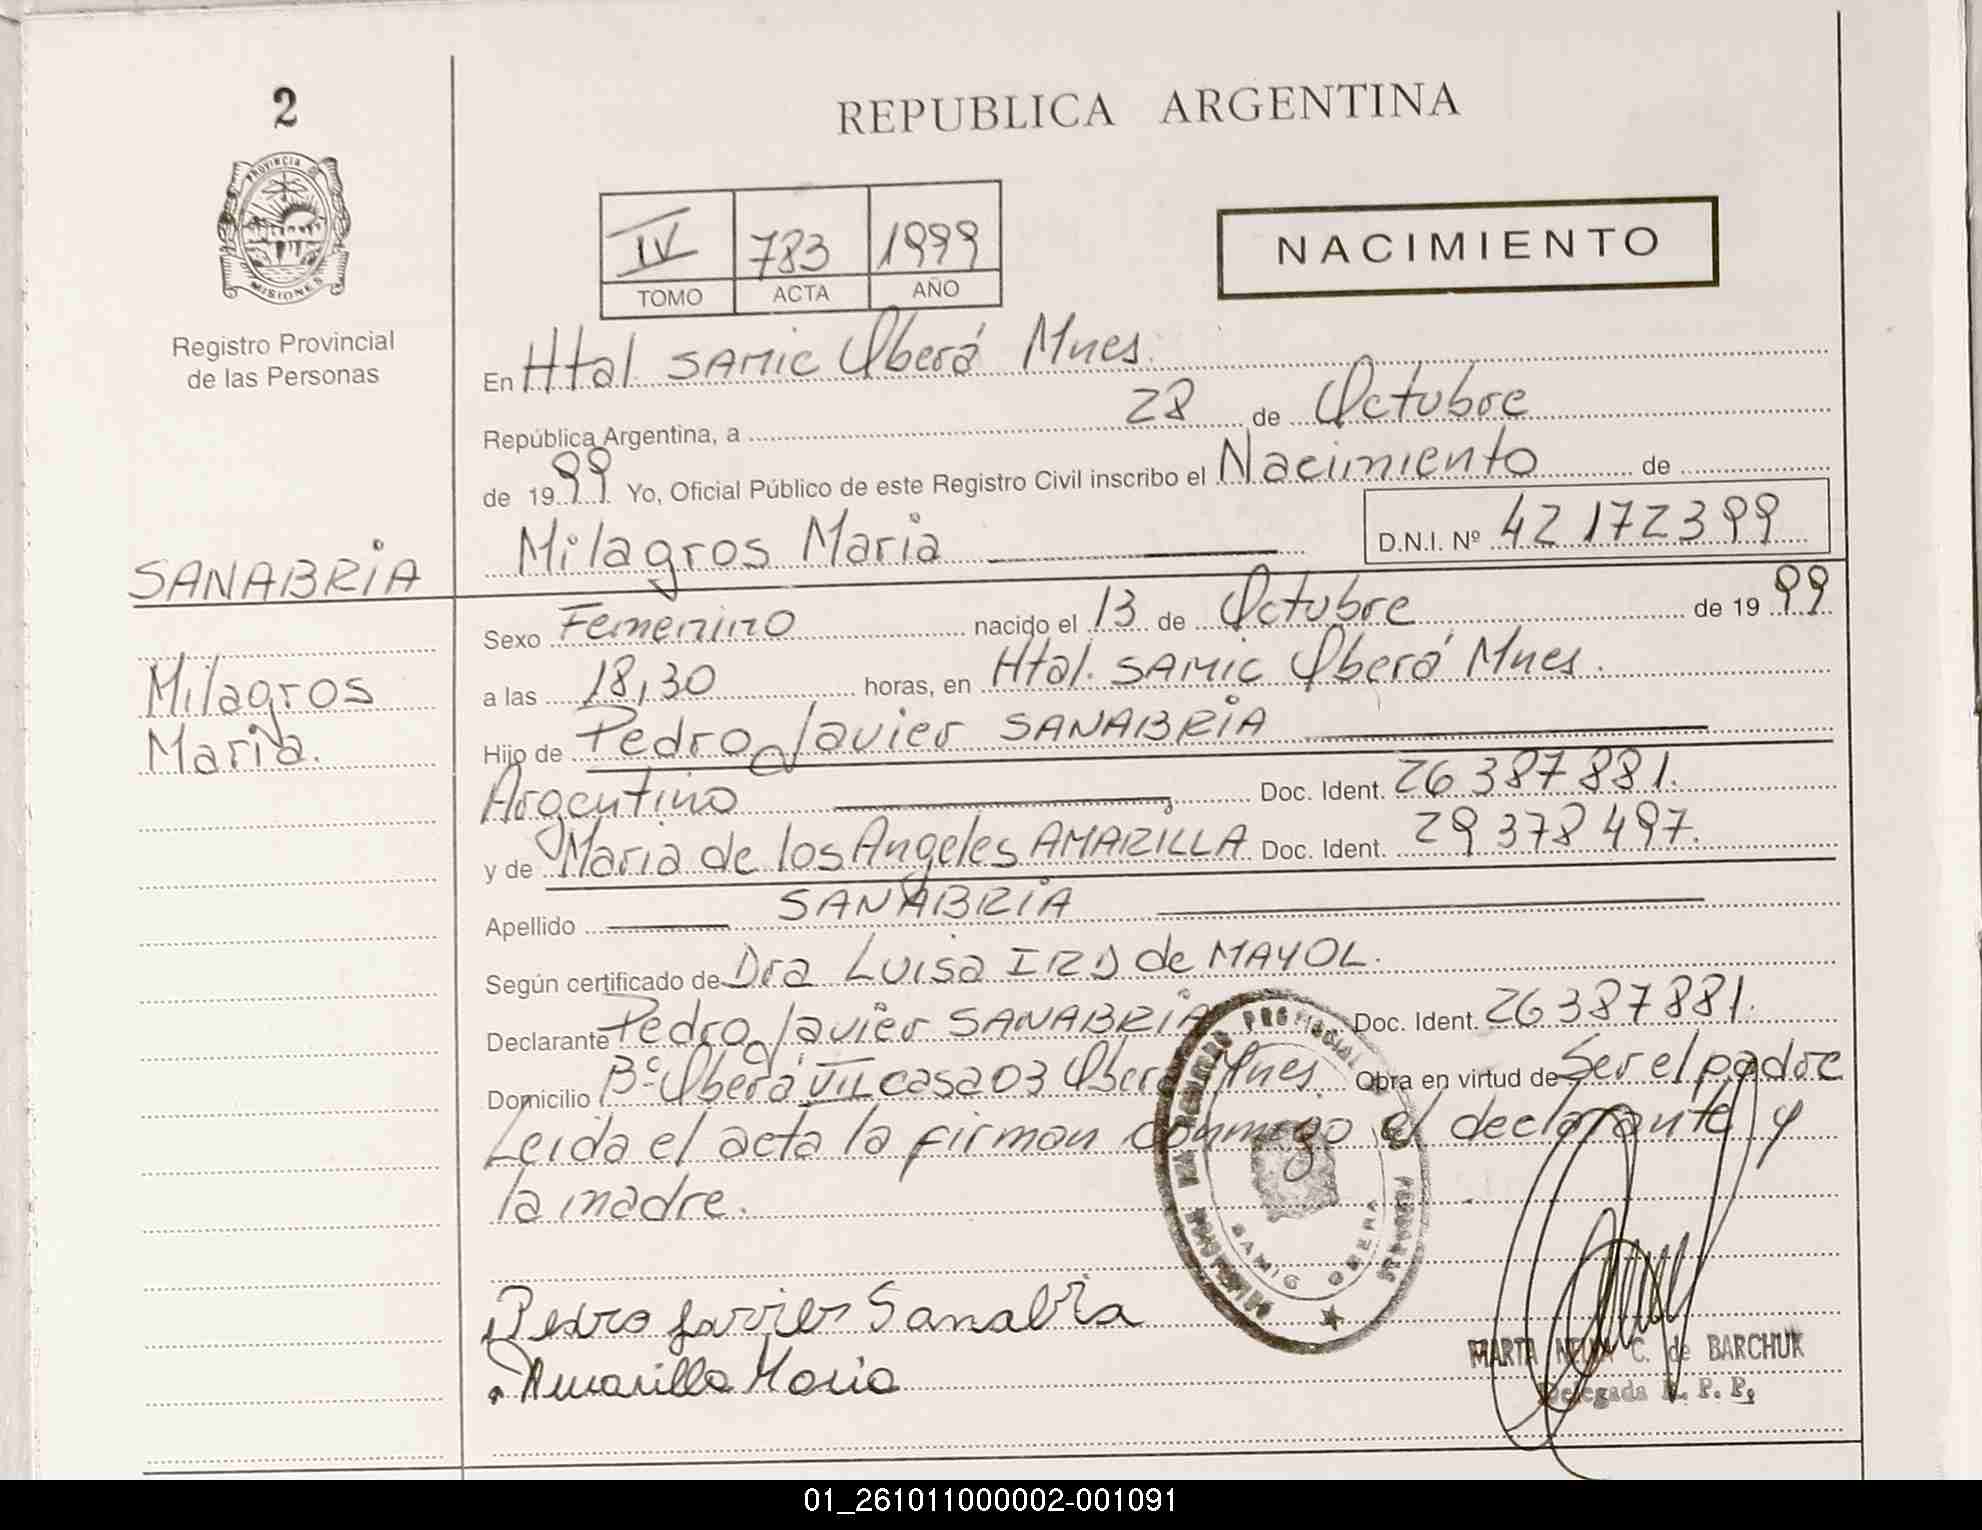 2
REPUBLICA ARGENTINA
PROVINCIA
MISIONES
Registro Provincial
de las Personas
IV 783 1999
TOMO ACTA AÑO
NACIMIENTO
En Htal. SAMIC Oberá Mnes.
República Argentina, a 28 de Octubre
de 1999 Yo, Oficial Público de este Registro Civil inscribo el Nacimiento de
Milagros Maria D.N.I. Nº 42172399
SANABRIA
Milagros
Maria.
Sexo Femenino nacido el 13 de Octubre de 1999
a las 18,30 horas, en Htal. SAMIC Oberá Mnes.
Hijo de Pedro Javier SANABRIA
Argentino Doc. Ident. 26387881.
y de Maria de los Angeles AMARILLA Doc. Ident. 29378497.
Apellido SANABRIA
Según certificado de Dra Luisa de MAYOL.
Declarante Pedro Javier SANABRIA Doc. Ident. 26387881.
Domicilio Bº Oberá VII casa 03 Oberá Mnes Obra en virtud de Ser el padre
Leida el acta la firman conmigo el declarante y
la madre.
PROVINCIAL
SAMIC OBERA
Pedro Javier Sanabria
Amarilla Maria
MARTA C. de BARCHUK
Delegada R. P. P.
01_261011000002-001091